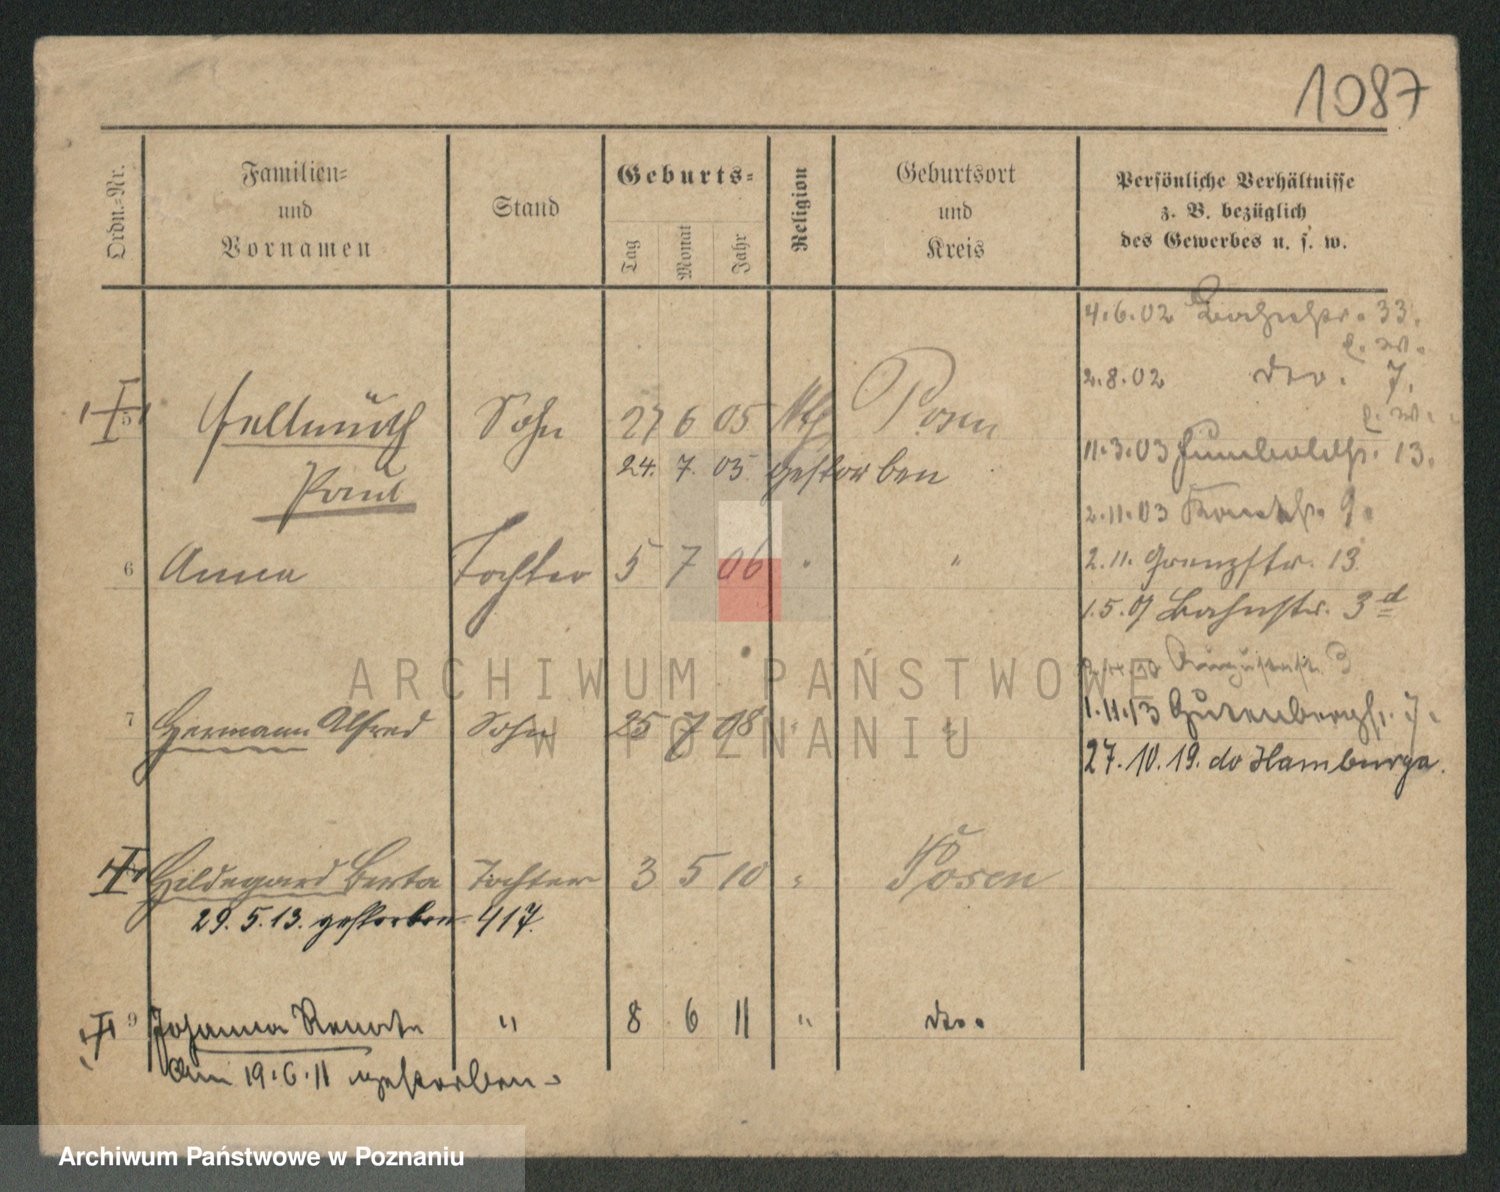 1087
Ordn.-Nr.
Familien-
und
Vornamen
Stand
Geburts-
Tag
Monat
Jahr
Religion
Geburtsort
und
Kreis
Persönliche Verhältnisse
z. B. bezüglich
des Gewerbes u. s. w.
4.6.02 Bahnhstr. 33.
2.8.02 do. 7.
5 Hellmuth Sohn 27 6 05 Posen
11.3.03 Humboldtstr. 13.
Paul 24. 7. 05 gestorben
2.11.03 9.
6 Anna Tochter 5 7 06 " "
2.11. Grenzstr. 13
1.5.07 Bahnstr. 3d
Augustastr. 3
7 Hermann Alfred Sohn 25 7 08 " "
1.11.13 Gutenbergstr. 7.
27.10.19. do Hamburga.
Hildegard Berta Tochter 3 5 10 " Posen
29.5.13. gestorben 417.
9 Johanna Renate " 8 6 11 " do.
Am 19.6.11 gestorben.
ARCHIWUM PAŃSTWOWE
W POZNANIU
Archiwum Państwowe w Poznaniu